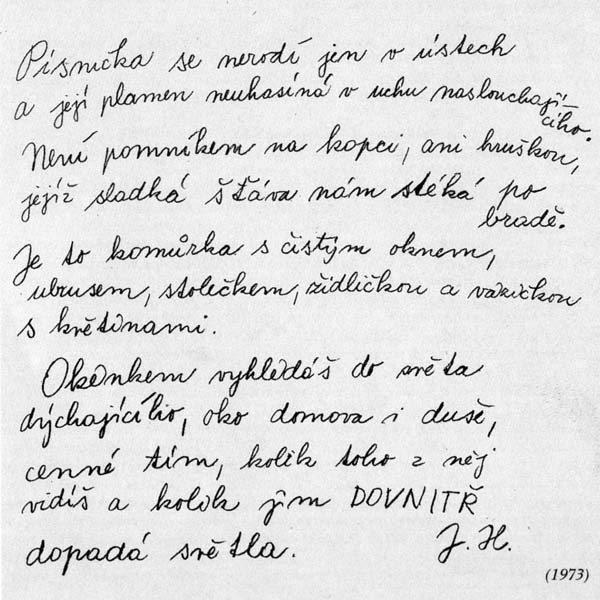 Písnička se nerodí jen v ústech
a její plamen neuhasíná v uchu naslouchají-
cího.
Není pomníkem na kopci, ani hruškou,
jejíž sladká šťáva nám stéká po
bradě.
Je to komůrka s čistým oknem,
ubrusem, stolečkem, židličkou a vázičkou
s květinami.
Okénkem vyhlédáš do světa
dýchajícího, oko domova i duše,
cenné tím, kolik toho z něj
vidíš a kolik jím DOVNITŘ
dopadá světla.
J. H.
(1973)